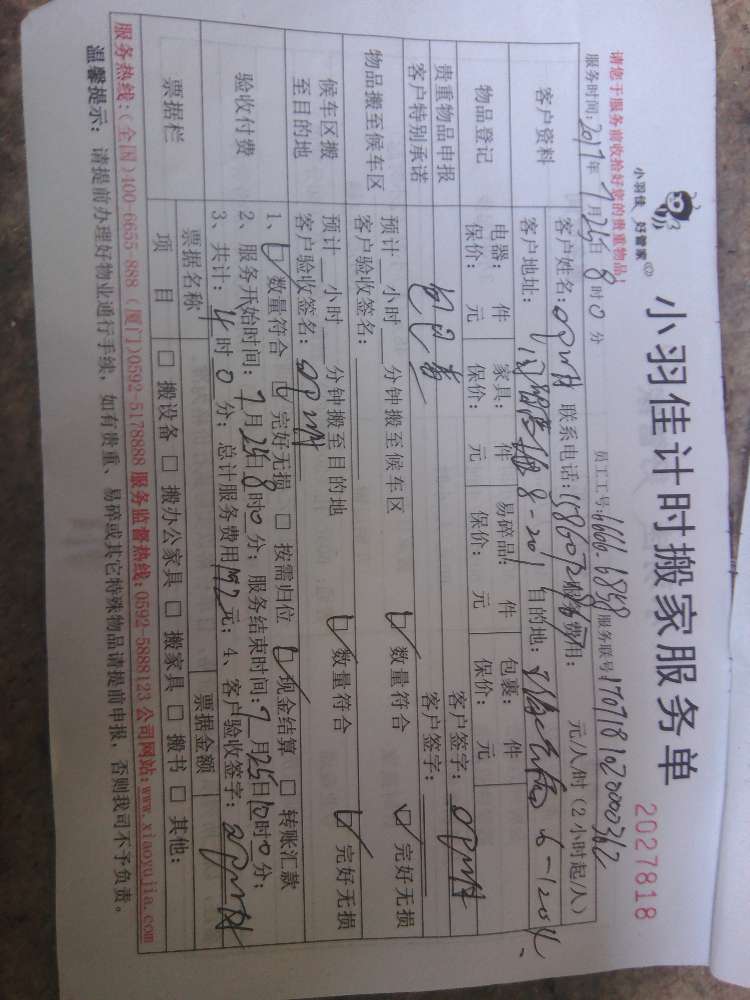 小羽佳 好管家
小羽佳计时搬家服务单
2027818
请您于服务前收拾好您的贵重物品！
服务时间：2017年 月25日8时0分 员工工号： 服务联号
客户资料
客户姓名： 联系电话： 服务费用： 元/人/时（2小时起/人）
客户地址： 8-201 目的地：
物品登记
电器： 件 家具： 件 易碎品： 件 包裹： 件
保价： 元 保价： 元 保价： 元 保价： 元
贵重物品申报 客户签字：
客户特别承诺 客户签字：
物品搬至候车区
预计 小时 分钟搬至候车区 ☑ 数量符合 ☑ 完好无损
客户验收签名：
候车区搬至目的地
预计 小时 分钟搬至目的地 ☑ 数量符合 ☑ 完好无损
客户验收签名：
验收付费
1、☑ 数量符合 ☑ 完好无损 □ 按需归位 ☑ 现金结算 □ 转账汇款
2、服务开始时间： 月25日8时0分；服务结束时间： 月25日10时0分；
3、共计：4时0分；总计服务费用192元；4、客户验收签字：
票据栏
票据名称 票据金额
项目 □ 搬设备 □ 搬办公家具 □ 搬家具 □ 搬书 □ 其他：
服务热线：（全国）400-6655-888（厦门）0592-5178888 服务监督热线：0592-5888123 公司网站：www.xiaoyujia.com
温馨提示：请提前办理好物业通行手续，如有贵重、易碎或其它特殊物品请提前申报，否则我司不予负责。